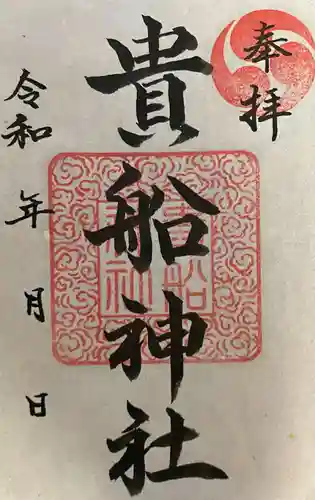 奉拝
貴船神社
令和 年 月 日
貴船
神社